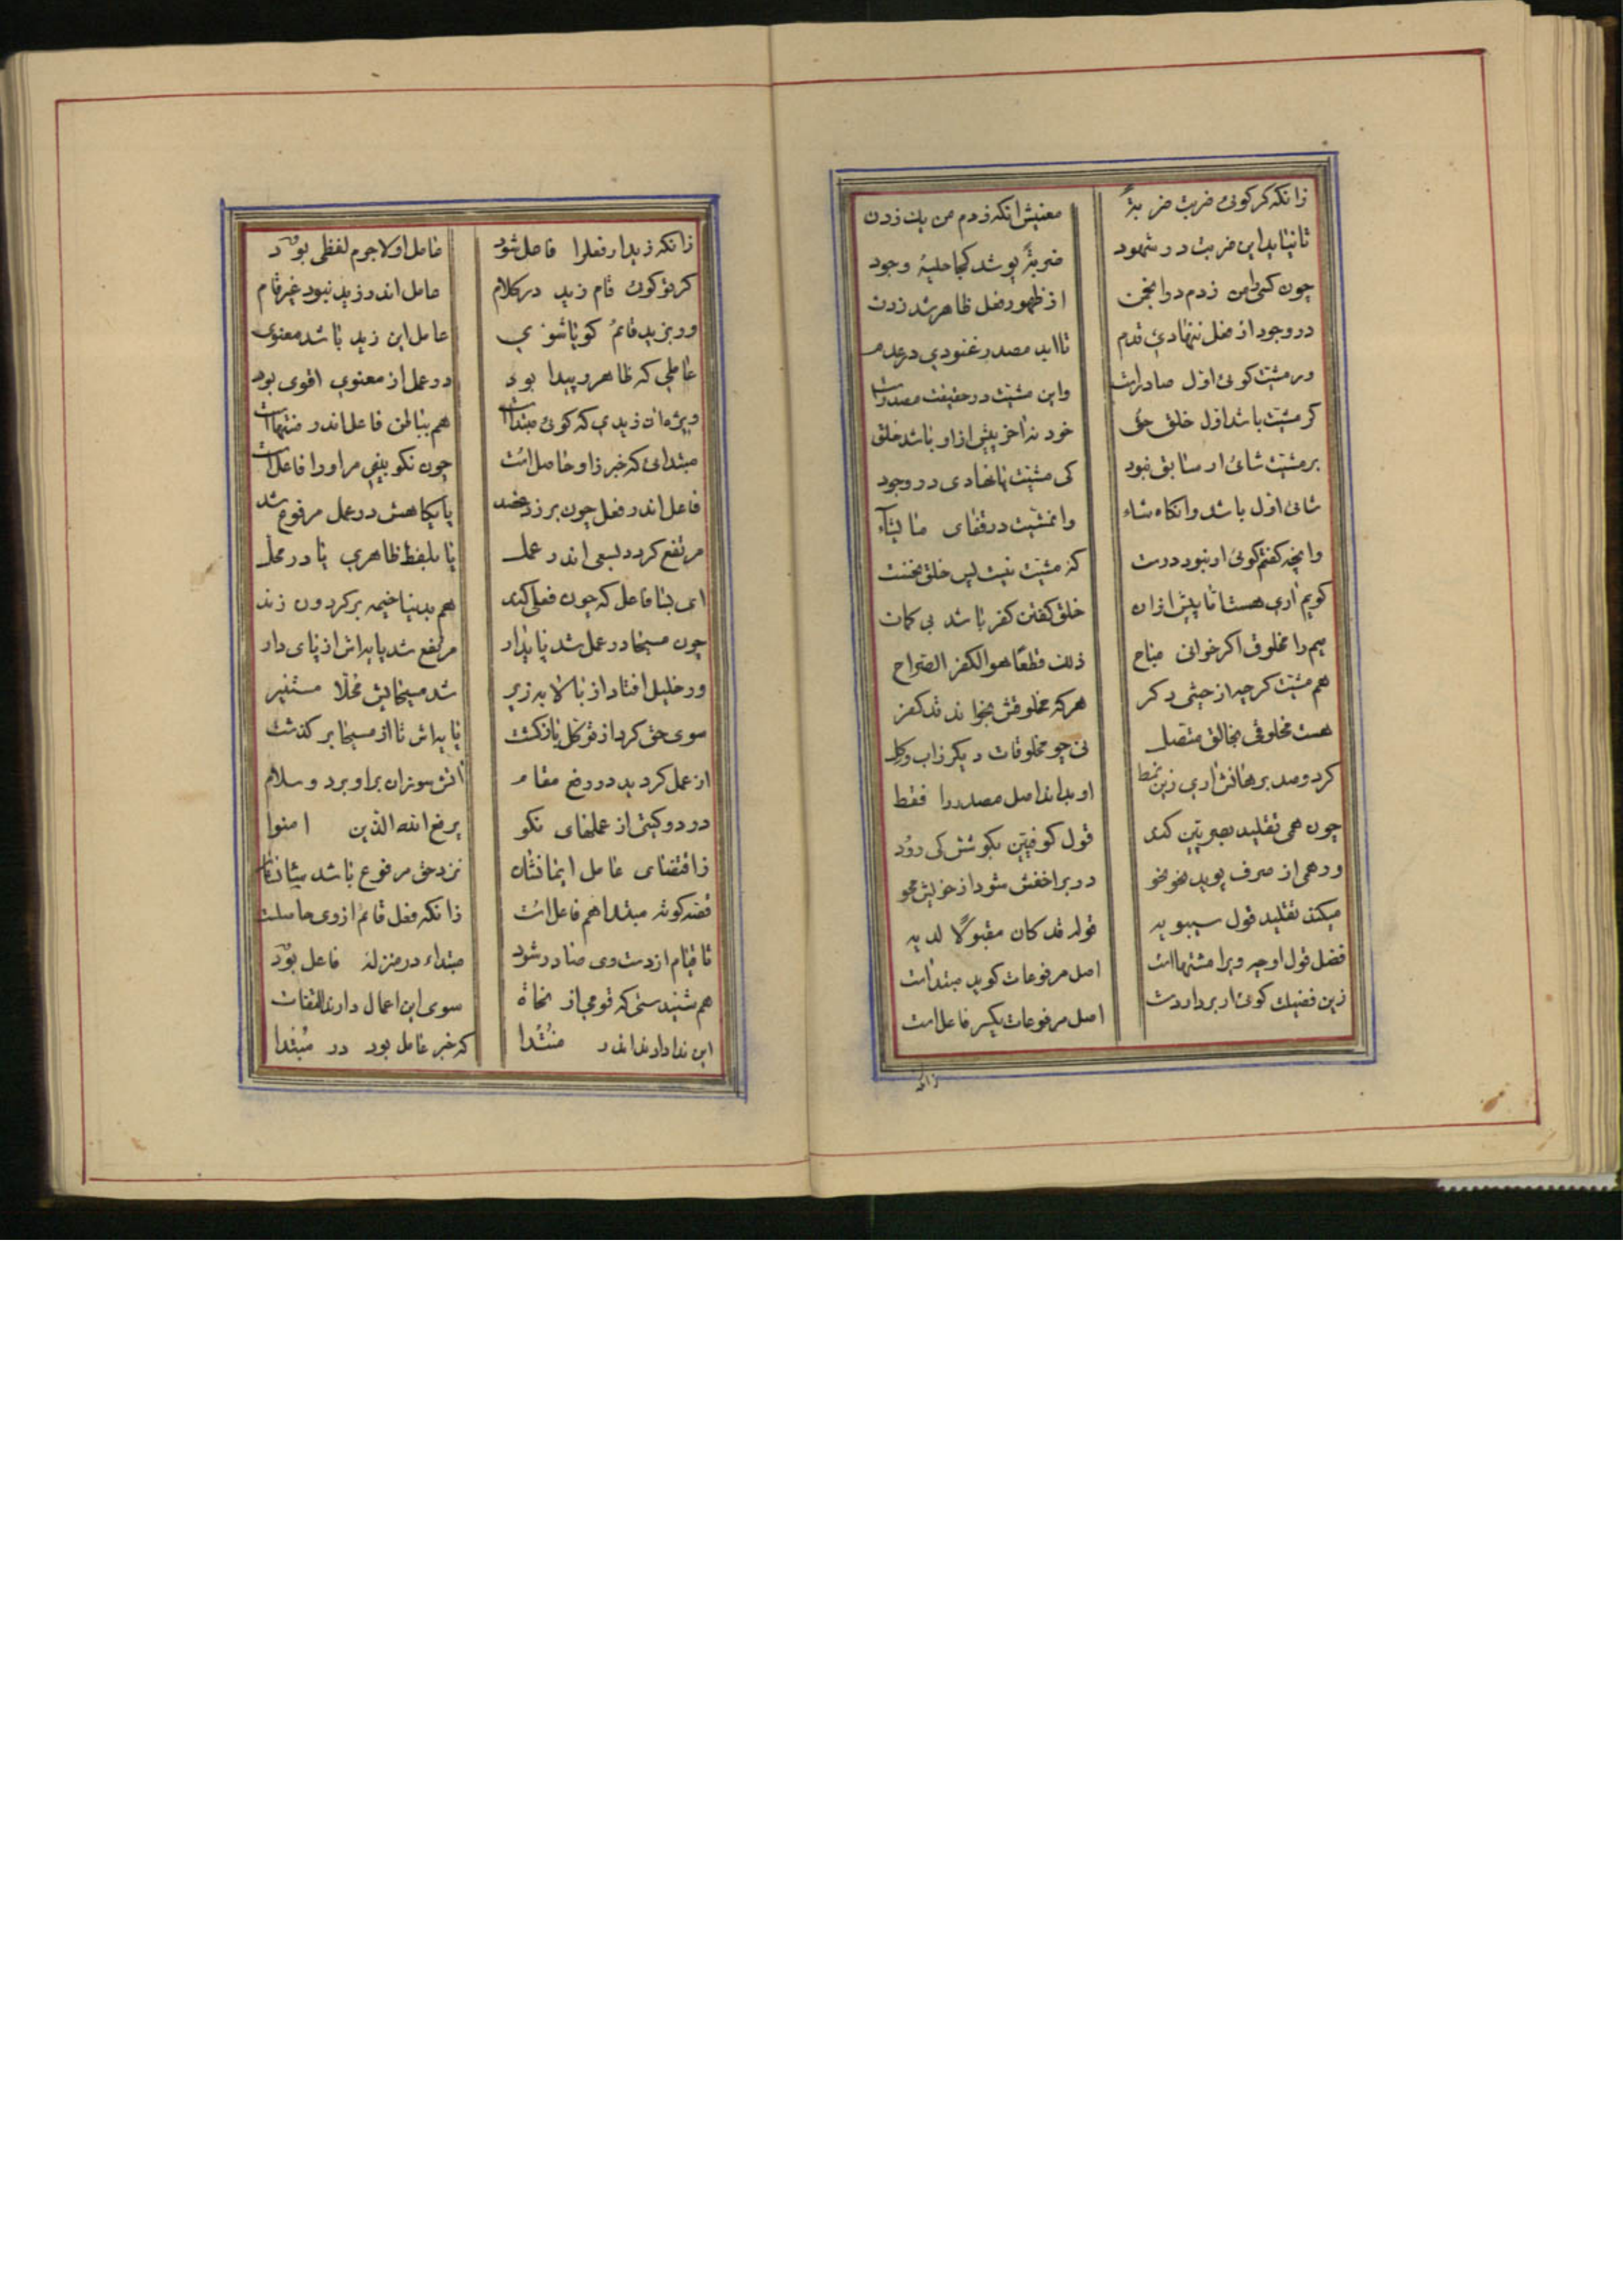 زانکه کر کوئی ضربت ضربةً معنیش انکه زدم من یک زدن
تا نیاید این ضربت در شهود ضربةً پوشد کجا حلیهٔ وجود
چون کسی را من زدم در انجمن از ظهور فعل ظاهر شد زدن
در وجود از فعل ننهادی قدم تا ابد مصدر غنودی در عدم
ور مشیّت کوئی اوّل صادر است واین مشیّت در حقیقت مصدر است
کر مشیّت باشد اوّل خلق حق خود نه اخر پیش از او باشد خلق
بر مشیّت شائی ار سابق نبود کی مشیّت پا نهادی در وجود
شائی اوّل باشد وانکاه شاء وانمشیّت در قفای ما یشآء
وانچه کفتم کوئی ار نبود درست که مشیّت نیست پس خلق نخست
کویم اری هست اما پیش ازان خلق کفتن کفر باشد بی کمان
میم را مخلوق اکر خوانی مباح ذلک قطعًا هو الکفر الصّراح
هم مشیّت کرچه از حیثی دکر هرکه مخلوقش بخواند قد کفر
هست مخلوقی بخالق متصل نی چو مخلوقات دیکر زاب وکل
کرد وصد برهانش اری زین نمط او بداند اصل مصدر را فقط
چون همی تقلید بصریّین کند قول کوفیّین بکوشش کی رود
ور همی از صرف پوید نحو نحو در بر اخفش شود از خویش محو
میکند تقلید قول سیبویه قوله قد کان مقبولًا لدیه
فضل قول اوچه ویرا مشتهااست اصل مرفوعات کوید مبتداست
زین فضیلت کوئی ار برداردست اصل مرفوعات یکسر فاعلست
زانکه
زانکه زید ار فعل را فاعل شود عامل او لاجرم لفظی بود
کر تو کوئی قام زید در کلام عامل اندر زید نبود غیر قام
ور بزید قائمٌ کویا شوی عامل این زید باشد معنوی
عاملی که ظاهر و پیدا بود در عمل از معنوی اقوی بود
ویژه ان زیدی که کوئی مبتداست هم بباطن فاعل اندر منتهاست
مبتدائی که خبر زاو حاصل است چون نکو بینی مر او را فاعل است
فاعل اندر فعل چون برزد پایکاهش در عمل مرفوع شد
مرتفع کردد بسعی اندر عمل یا بلفظ ظاهری یا در محل
ای بسا فاعل که چون فعلی کند هم بدنیا خیمه بر کردون زند
چون مسیحا در عمل شد پایدار مرتفع شد پایه‌اش از پای دار
ور خلیل افتاد از بالا بزیر شد مسیحایش محلّا مستنیر
سوی حق کرد از توکّل بازکشت پایه‌اش تا از مسیحا بر کذشت
از عمل کردید در وی مقام اتش سوزان براو برد و سلام
در دو کیتی از عملهای نکو یرفع الله الّذین امنوا
زاقتضای عامل ایمانشان نزد حق مرفوع باشد شانشان
قصّه کوته مبتدا هم فاعل است زانکه فعل قائمٌ از وی حاصلست
تا قیام از دست وی صادر شود مبتداء در منزله فاعل بود
هم شنیدستی که قومی از نحاة سوی این اعمال دارند التفات
این ندا دارند اندر منتدا که خبر عامل بود در مبتدا